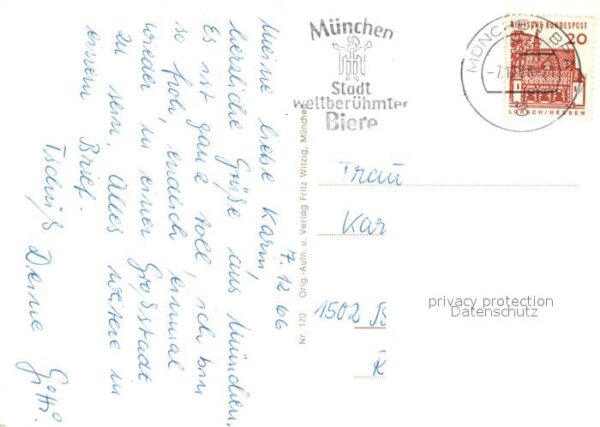 7.12.66
Meine liebe Karin!
herzliche Grüße aus München.
Es ist ganz toll, ich bin
so froh, endlich einmal
wieder in einer Großstadt
zu sein. Alles weitere in
einem Brief.
Tschüß Deine
Nr. 170 Orig.-Aufn. u. Verlag Fritz Witzig, München
München
Stadt
weltberühmter
Biere
MÜNCHEN
DEUTSCHE BUNDESPOST
20
LORSCH/HESSEN
Frau
Kar
1502 B
K
privacy protection
Datenschutz